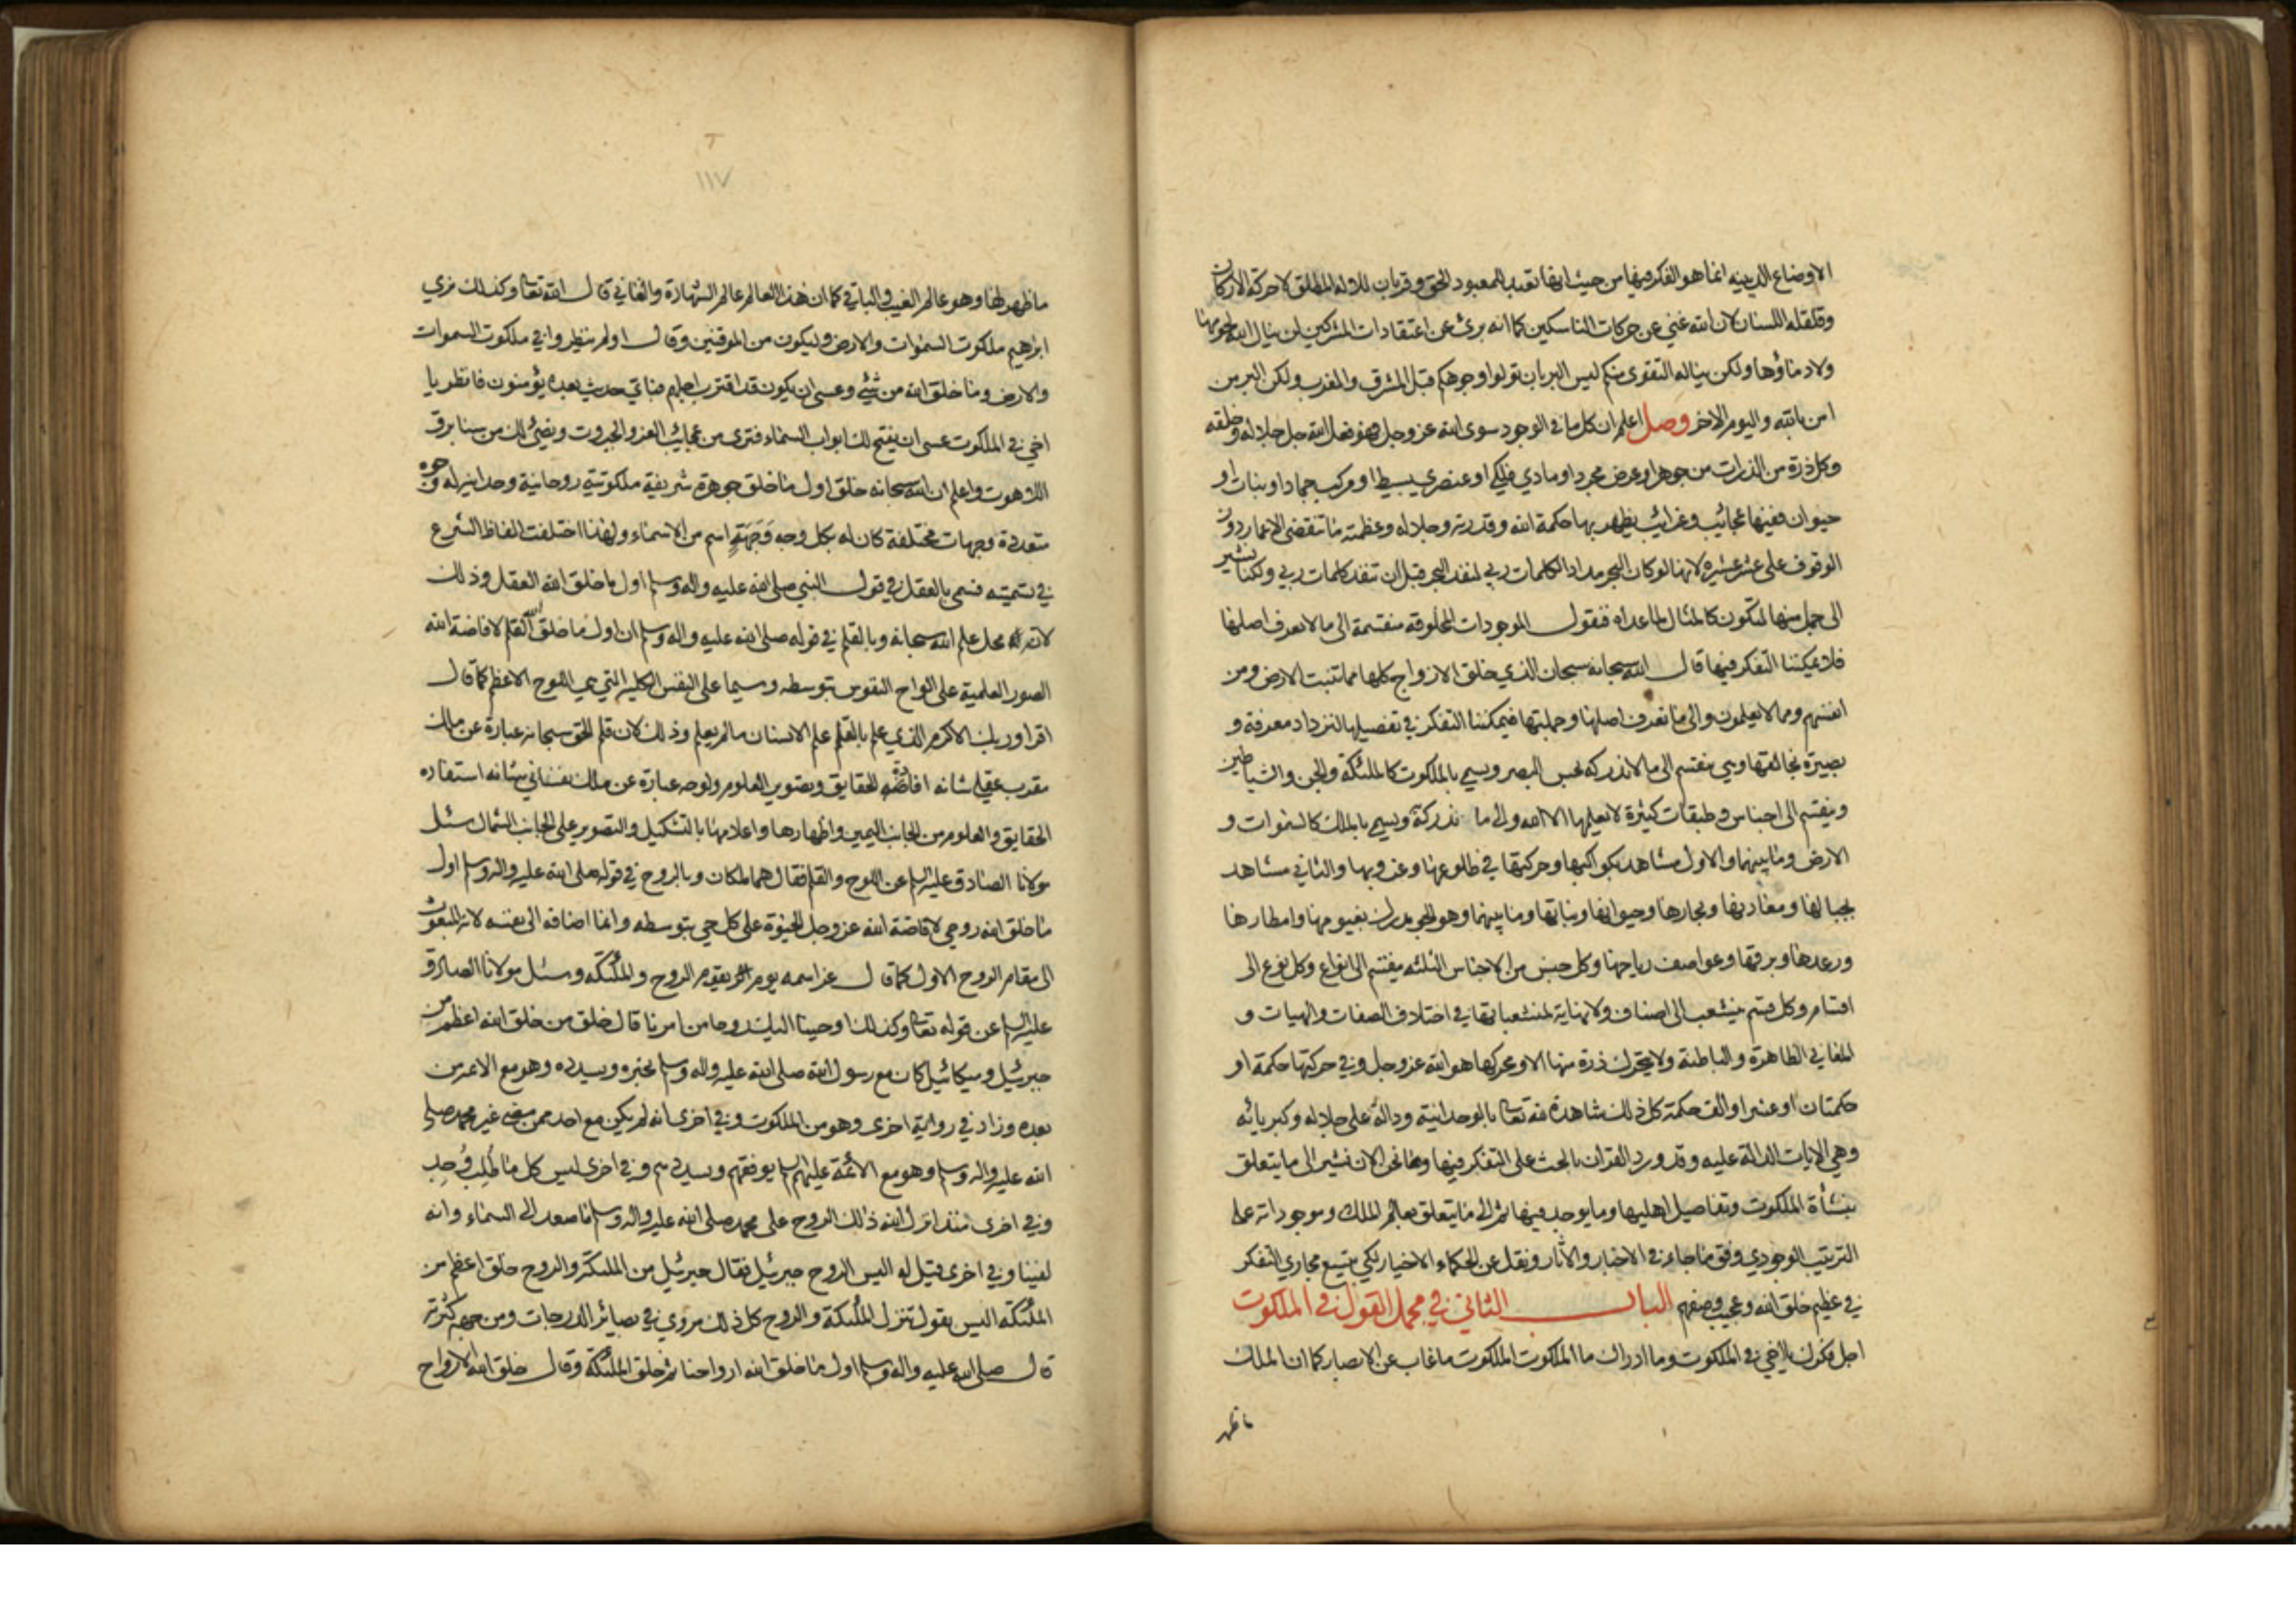 الاوضاع الدينيه انما هو الفكر فيها من حيث انها تعبد للمعبود الحق وقربات للاوله المطلق لا حركة الاركان
وقلقله اللسان لان الله غني عن حركات الناسكين كما انه برئ عن اعتقادات المشركين لن ينال الله لحومها
ولا دماؤها ولكن يناله التقوى منكم ليس البر بان تولوا وجوهكم قبل المشرق والمغرب ولكن البر من
امن بالله واليوم الاخر وصل اعلم ان كل ما في الوجود سوى الله عز وجل فهو فعل الله جل جلاله وخلقه
وكل ذرة من الذرات من جوهر او عرض مجرد او مادي فلكي او عنصري بسيط او مركب جماد او نبات او
حيوان ففيها عجائب وغرائب يظهر بها حكمة الله وقدرته وجلاله وعظمته ما تنقضى الاعمار دون
الوقوف على عشر عشيره لانها لو كان البحر مدادا لكلمات ربي لنفد البحر قبل ان تنفد كلمات ربي ولكنا نشير
الى جمل منها لتكون كالمثال لما عداه فنقول الموجودات المخلوقة منقسمة الى ما لا نعرف اصلها
فلا يمكننا التفكر فيها قال الله سبحانه سبحان الذي خلق الازواج كلها مما تنبت الارض ومن
انفسهم ومما لا يعلمون والى ما نعرف اصلها وجملتها فيمكننا التفكر في تفصيلها لنزداد معرفة و
بصيرة بخالقها وهي منقسم الى ما لا ندركه بحس البصر ويسمى بالملكوت كالملئكة والجن والشياطين
وينقسم الى اجناس وطبقات كثيرة لا يعلمها الا الله والى ما ندركة ويسمى بالملك كالسموات و
الارض وما بينهما والاول مشاهد بكواكبها وحركتها في طلوعها وغروبها والثاني مشاهد
بجبالها ومعادنها وبحارها وحيوانها ونباتها وما بينهما وهو الجو مدرك بغيومها وامطارها
ورعدها وبرقها وعواصف رياحها وكل جنس من الاجناس الثلثه ينقسم الى انواع وكل نوع الى
اقسام وكل قسم ينشعب الى اصناف ولا نهاية لمنشعباتها في اختلاف الصفات والهيات و
المعاني الظاهرة والباطنة ولا يتحرك ذرة منها الا ومحركها هو الله عز وجل وفي حركتها حكمة او
حكمتان او عشر او الف حكمة كل ذلك شاهدة لله تعالى بالوحدانية ودالة على جلاله وكبريائه
وهي الايات الدالة عليه وقد ورد القران بالحث على التفكر فيها وها نحن الان نشير الى ما يتعلق
بنشأة الملكوت وتفاصيل اهليها وما يوجد فيها ثم الى ما يتعلق بعالم الملك وموجوداته على
الترتيب الوجودي وفق ما جاء في الاخبار والاثار ونقل عن الحكماء الاخيار لكي يتسع مجاري التفكر
في عظيم خلق الله وعجيب وصفهم الباب الثاني في مجمل القول في الملكوت
اجل فكرك يا اخي في الملكوت وما ادراك ما الملكوت الملكوت ما غاب عن الابصار كما ان الملك
ما ظهر
١١٧
ما ظهر لها وهو عالم الغيب والباقي كما ان هذا العالم عالم الشهادة والفاني قال الله تعالى وكذلك نري
ابراهيم ملكوت السموات والارض وليكون من الموقنين وقال اولم ينظروا في ملكوت السموات
والارض وما خلق الله من شئ وعسى ان يكون قد اقترب اجلهم فباي حديث بعده يؤمنون فانظر يا
اخي في الملكوت عسى ان يفتح لك ابواب السماء فترى من عجائب العز والجبروت ويضئ لك من سنا برق
اللاهوت واعلم ان الله سبحانه خلق اول ما خلق جوهرة شريفية ملكوتية روحانية وحدانية له وجوه
متعددة وجهات مختلفة كان له بكل وجه وَجَهَةٍ اسم من الاسماء ولهذا اختلفت الفاظ الشرع
في تسميته فسمى بالعقل في قول النبي صلى الله عليه واله وسلم اول ما خلق الله العقل وذلك
لانه محل علم الله سبحانه وبالقلم في قوله صلى الله عليه واله وسلم ان اول ما خلق الله القلم لافاضة الله
الصور العلمية على الواح النفوس بتوسطه وسيما على النفس الكليه التي هي اللوح الاعظم كما قال
اقرا وربك الاكرم الذي علم بالقلم علم الانسان ما لم يعلم وذلك لان قلم الحق سبحانه عبارة عن ملك
مقرب عقلي شانه افاضة الحقايق وتصوير العلوم ولوحه عبارة عن ملك نفساني شانه استفاده
الحقايق والعلوم من الجانب اليمين واظهارها واعلامها بالتشكيل والتصوير على الجانب الشمال سئل
مولانا الصادق عليه السلام عن اللوح والقلم فقال هما ملكان وبالروح في قوله صلى الله عليه واله وسلم اول
ما خلق الله روحي لافاضة الله عز وجل الحيوة على كل حي بتوسطه وانما اضافه الى نفسه لانه المبعوث
الى مقام الروح الاول كما قال عز اسمه يوم يقوم الروح والملئكه وسئل مولانا الصادق
عليه السلام عن قوله تعالى وكذلك اوحينا اليك روحا من امرنا قال خلق من خلق الله اعظم من
جبرئيل وميكائيل كان مع رسول الله صلى الله عليه واله وسلم يخبره ويسدده وهو مع الائمه من
بعده وزاد في رواية اخرى وهو من الملكوت وفي اخرى انه لم يكن مع احد ممن مضى غير محمد صلى
الله عليه واله وسلم وهو مع الائمة عليهم السلام يوفقهم ويسددهم وفي اخرى ليس كل ما طُلِبَ وُجِد
وفي اخرى منذ انزل الله ذلك الروح على محمد صلى الله عليه واله وسلم ما صعد الى السماء وانه
لفينا وفي اخرى قيل له اليس الروح جبرئيل فقال جبرئيل من الملئكة والروح خلق اعظم من
الملئكه اليس يقول تنزل الملئكة والروح كل ذلك مروي في بصائر الدرجات ومن جهة كثرته
قال صلى الله عليه واله وسلم اول ما خلق الله ارواحنا ثم خلق الملئكة وقال خلق الله الارواح